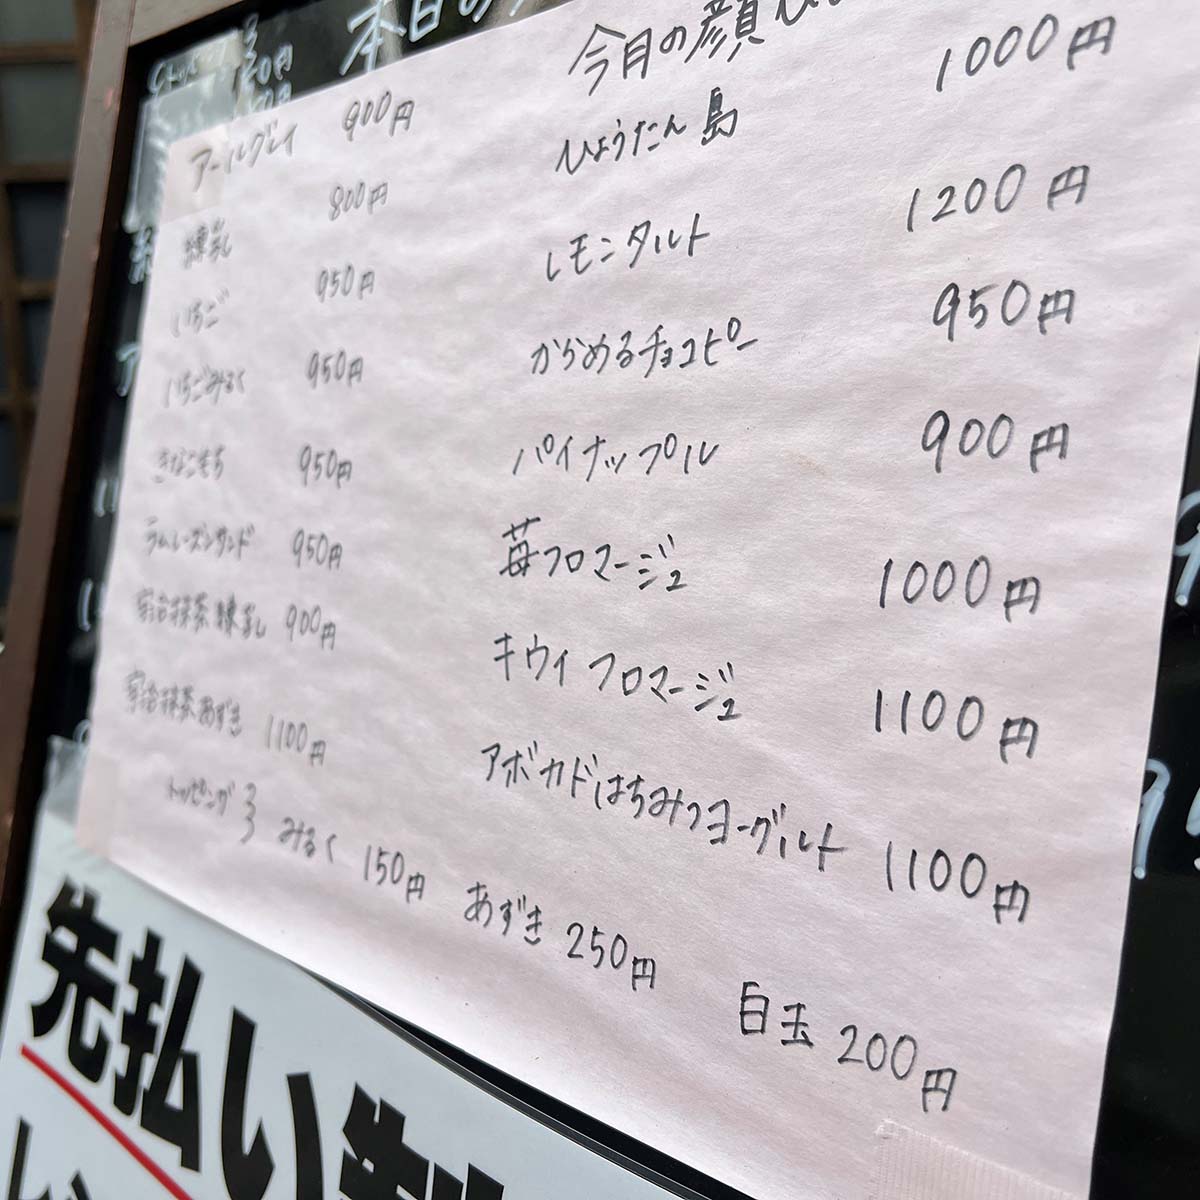 本日の
アールグレイ 900円
練乳 800円
いちご 950円
いちごみるく 950円
きなこもち 950円
ラムレーズンサンド 950円
宇治抹茶練乳 900円
宇治抹茶あずき 1100円
今月の顔
ひょうたん島 1000円
レモンタルト 1200円
からめるチョコピー 950円
パイナップル 900円
苺フロマージュ 1000円
キウイフロマージュ 1100円
アボカドはちみつヨーグルト 1100円
トッピング みるく 150円 あずき 250円 白玉 200円
先払い